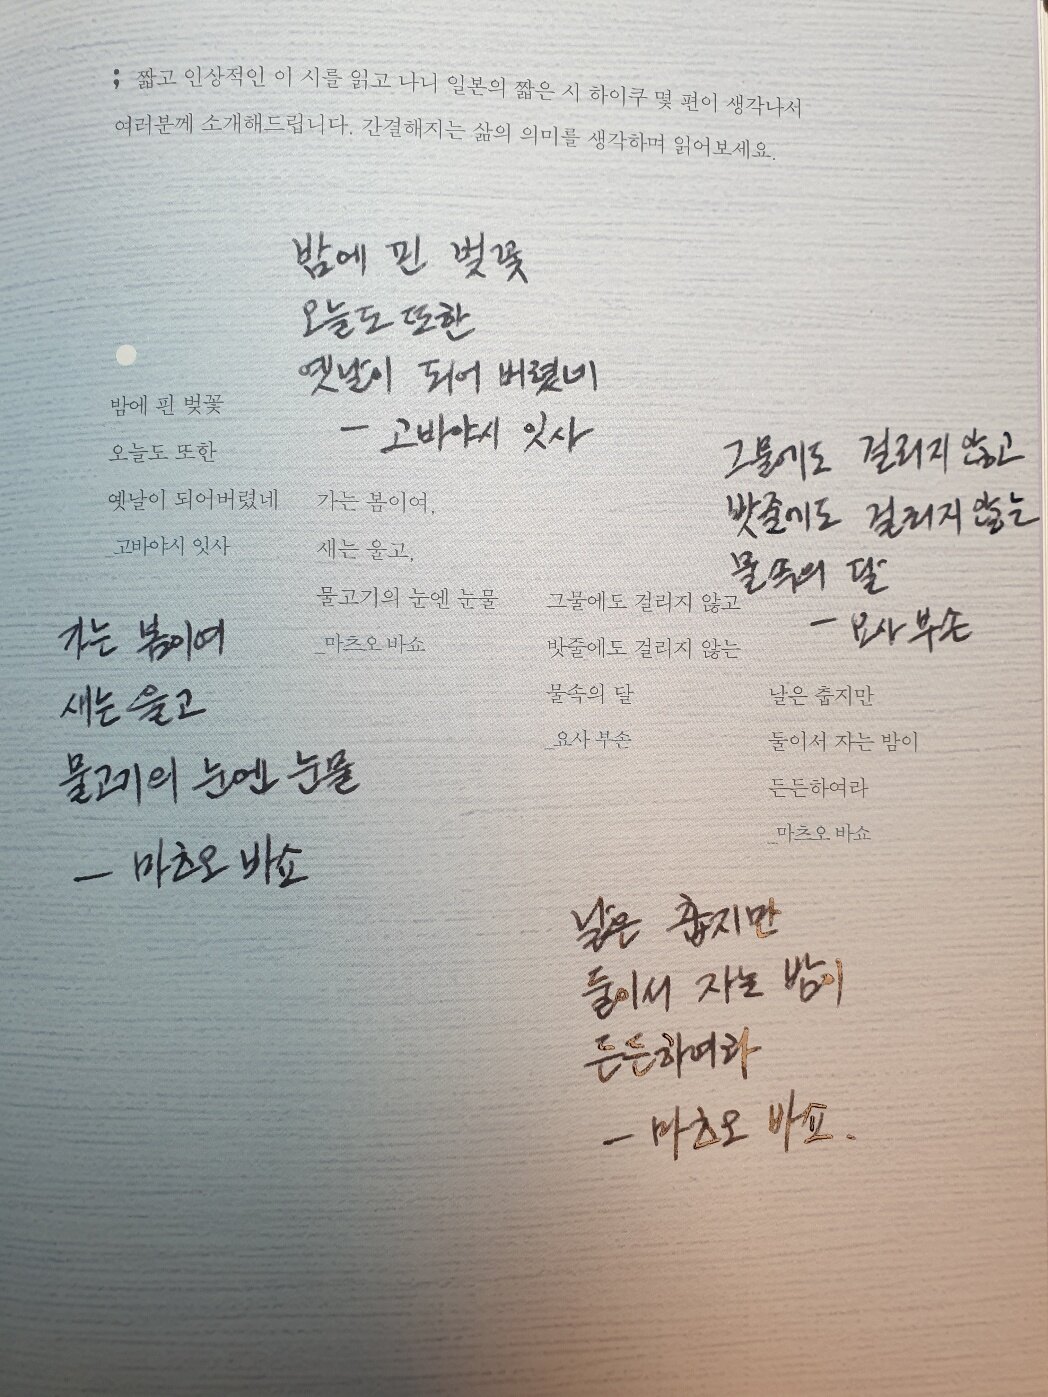 ; 짧고 인상적인 이 시를 읽고 나니 일본의 짧은 시 하이쿠 몇 편이 생각나서
여러분께 소개해드립니다. 간결해지는 삶의 의미를 생각하며 읽어보세요.
밤에 핀 벚꽃
오늘도 또한
옛날이 되어 버렸네
- 고바야시 잇사
밤에 핀 벚꽃
오늘도 또한
옛날이 되어버렸네
_고바야시 잇사
가는 봄이여,
새는 울고,
물고기의 눈엔 눈물
_마츠오 바쇼
그물에도 걸리지 않고
밧줄에도 걸리지 않는
물속의 달
- 요사 부손
그물에도 걸리지 않고
밧줄에도 걸리지 않는
물속의 달
_요사 부손
가는 봄이여
새는 울고
물고기의 눈엔 눈물
- 마츠오 바쇼
날은 춥지만
둘이서 자는 밤이
든든하여라
_마츠오 바쇼
날은 춥지만
둘이서 자는 밤이
든든하여라
- 마츠오 바쇼.